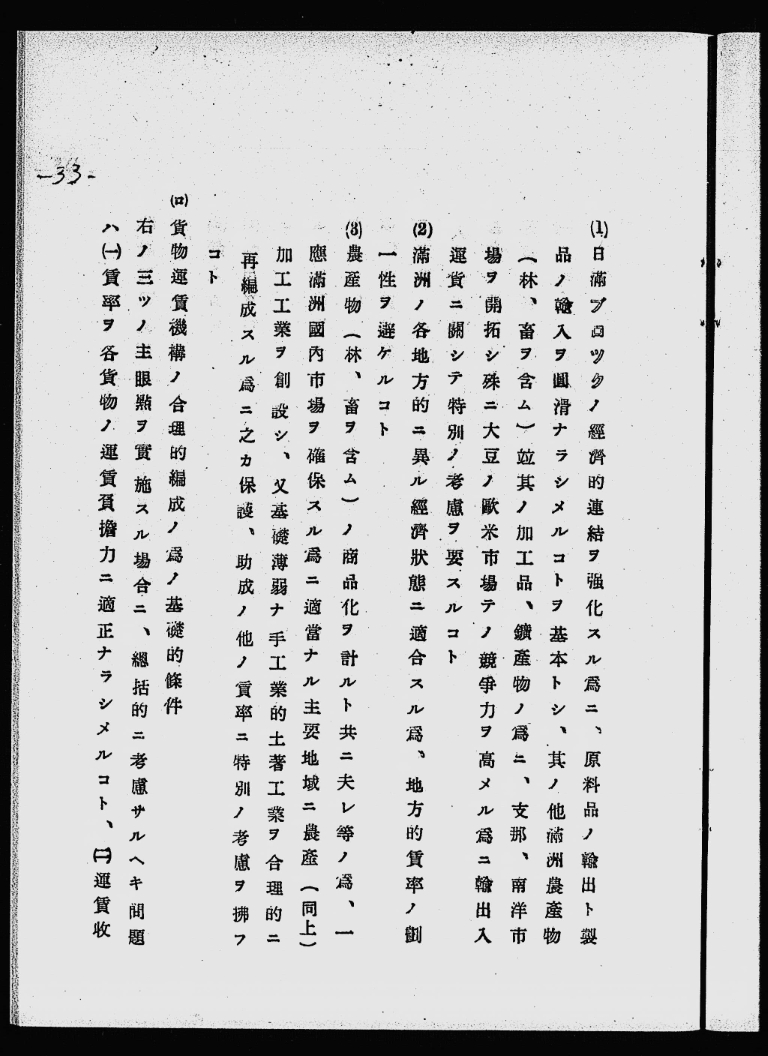 (1)日滿ブロツクノ經濟的連結ヲ强化スル爲ニ、原料品ノ輸出ト製
品ノ輸入ヲ圓滑ナラシメルコトヲ基本トシ、其ノ他滿洲農產物
(林、畜ヲ含ム)竝其ノ加工品、鑛產物ノ爲ニ、支那、南洋市
場ヲ開拓シ殊ニ大豆ノ歐米市場テノ競爭力ヲ高メル爲ニ輸出入
運貨ニ關シテ特別ノ考慮ヲ要スルコト
(2)滿洲ノ各地方的ニ異ル經濟狀態ニ適合スル爲、地方的賃率ノ劃
一性ヲ避ケルコト
(3)農產物(林、畜ヲ含ム)ノ商品化ヲ計ルト共ニ夫レ等ノ爲、一
應滿洲國內市場ヲ確保スル爲ニ適當ナル主要地域ニ農產(同上)
加工工業ヲ創設シ、又基礎薄弱ナ手工業的土著工業ヲ合理的ニ
再編成スル爲ニ之カ保護、助成ノ他ノ賃率ニ特別ノ考慮ヲ拂フ
コト
(ロ)貨物運賃機構ノ合理的編成ノ爲ノ基礎的條件
右ノ三ツノ主眼點ヲ實施スル場合ニ、總括的ニ考慮サルヘキ問題
ハ(一)賃率ヲ各貨物ノ運賃負擔力ニ適正ナラシメルコト、(二)運賃收
-33-